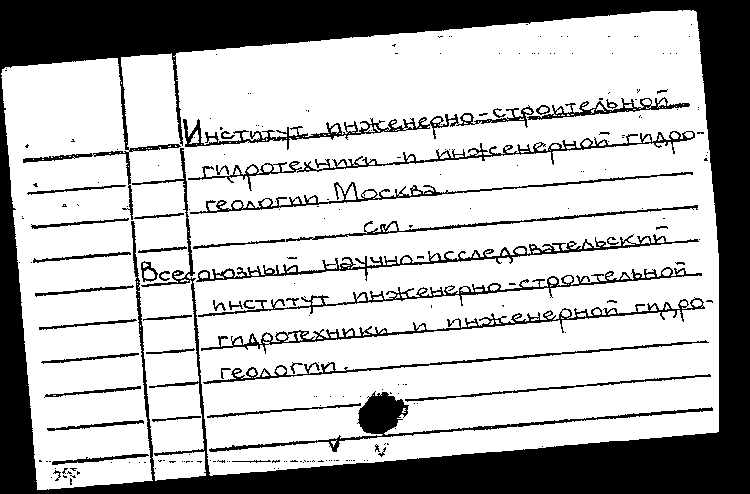 Институт инженерно-строительной
гидротехники и инженерной гидро-
геологии Москва
см.
Всесоюзный научно-исследовательский
институт инженерно-строительной
гидротехники и инженерной гидро-
геологии.